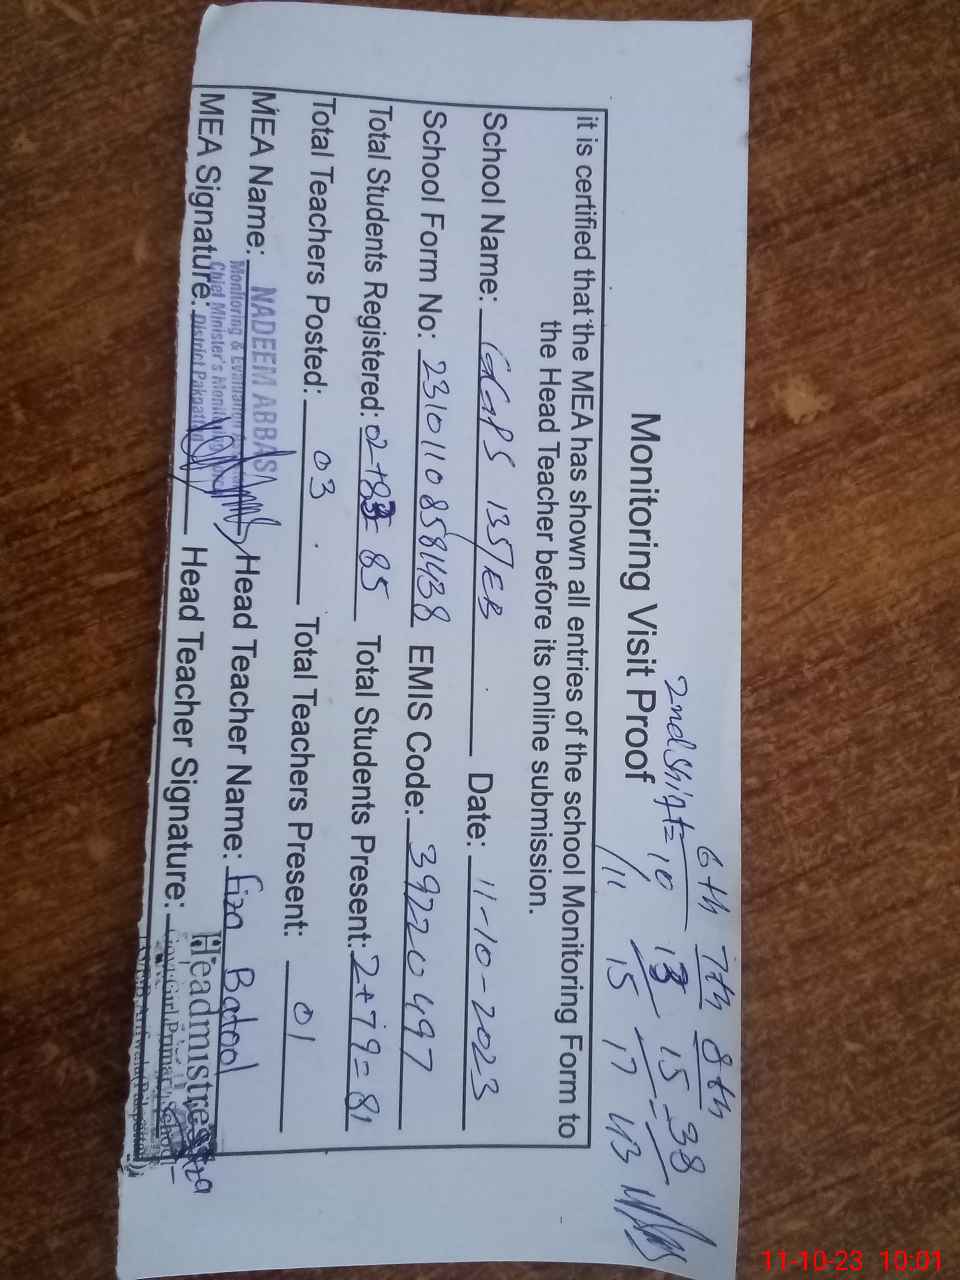 6th 7th 8th
2nd shift= 10 13 15 - 38
/11 15 17 43
Monitoring Visit Proof
it is certified that the MEA has shown all entries of the school Monitoring Form to
the Head Teacher before its online submission.
School Name: GGPS 135/EB Date: 11-10-2023
School Form No: 23101108581438 EMIS Code: 39220497
Total Students Registered: 02+83= 85 Total Students Present: 2+79= 81
Total Teachers Posted: 03 Total Teachers Present: 01
MEA Name: NADEEM ABBAS Head Teacher Name: Fiza Batool
Monitoring & Evaluation
MEA Signature: Head Teacher Signature: Headmistress
Chief Minister's Monitoring
District Pakpattan
Govt: Girl Primary School
135/E.B Arifwala (Pakpattan)
11-10-23 10:01